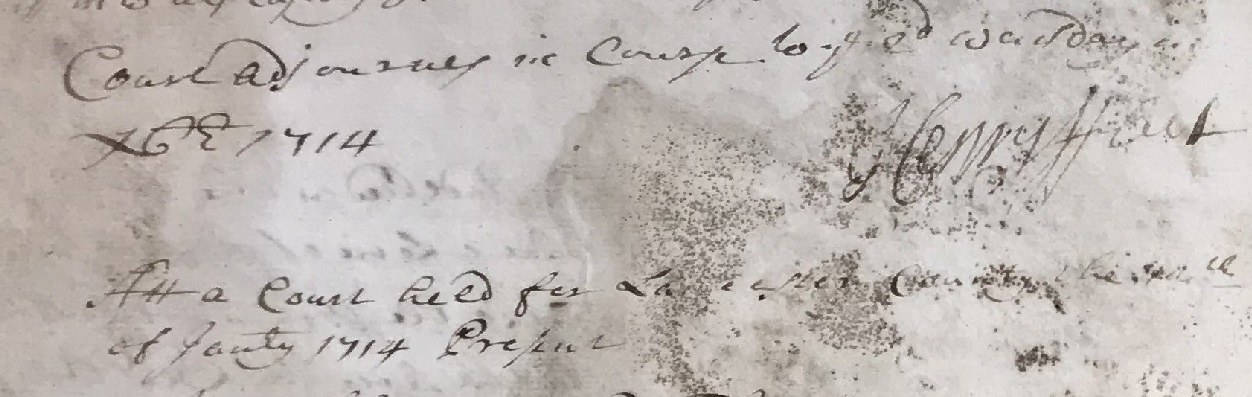 Court adjourns in Course to ye 2d wensday in
Xbr 1714
Henry ffleet
Att a Court held for Lancaster County the
of Janry 1714 Present